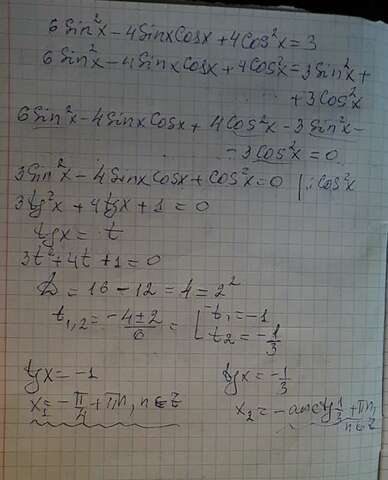 6Sin²x-4SinxCosx+4Cos²x=3
6Sin²x-4SinxCosx+4Cos²x=3Sin²x+
+3Cos²x
6Sin²x-4SinxCosx+4Cos²x-3Sin²x-
-3Cos²x=0
3Sin²x-4SinxCosx+Cos²x=0 |:Cos²x
3tg²x+4tgx+1=0
tgx=t
3t²+4t+1=0
D=16-12=4=2²
t₁,₂=(-4±2)/6=[t₁=-1
t₂=-1/3
tgx=-1 tgx=-1/3
x₁=-π/4+πn, n∈Z x₂=-arctg1/3+πn,
n∈Z